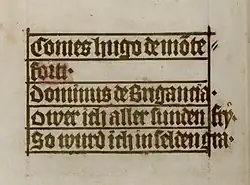 Comes hugo de mōte
forti·
Dominus de Brigancia·
O wer ich aller sunden fry·
So wurd ich in selten gra·